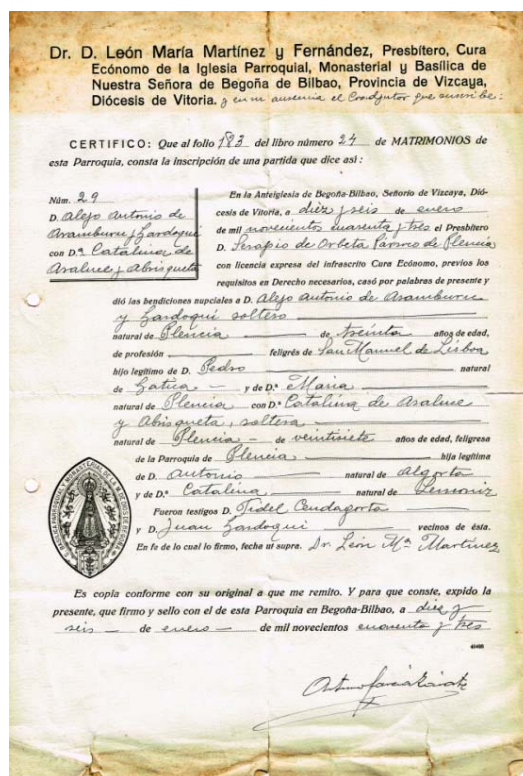 Dr. D. León María Martínez y Fernández, Presbítero, Cura
Ecónomo de la Iglesia Parroquial, Monasterial y Basílica de
Nuestra Señora de Begoña de Bilbao, Provincia de Vizcaya,
Diócesis de Vitoria. y en su ausencia el Coadjutor que suscribe:
CERTIFICO: Que al folio 183 del libro número 24 de MATRIMONIOS de
esta Parroquia, consta la inscripción de una partida que dice así:
Núm. 29
D. Alejo Antonio de
Aramburu y Gardoqui
con D.ª Catalina de
Araluce y Abrisqueta
En la Anteiglesia de Begoña-Bilbao, Señorío de Vizcaya, Dió-
cesis de Vitoria, a diez y seis de enero
de mil novecientos cuarenta y tres el Presbítero
D. Serapio de Orbeta Párroco de Plencia
con licencia expresa del infrascrito Cura Ecónomo, previos los
requisitos en Derecho necesarios, casó por palabras de presente y
dió las bendiciones nupciales a D. Alejo Antonio de Aramburu
y Gardoqui soltero
natural de Plencia de treinta años de edad,
de profesión feligrés de San Manuel de Lisboa
hijo legítimo de D. Pedro natural
de Gatica y de D.ª Maria
natural de Plencia con D.ª Catalina de Araluce
y Abisqueta, soltera
natural de Plencia de veintisiete años de edad, feligresa
de la Parroquia de Plencia hija legítima
de D. Antonio natural de Algorta
y de D.ª Catalina natural de Lemoniz
Fueron testigos D. Fidel Cendagorta
y D. Juan Gardoqui vecinos de ésta.
En fe de lo cual lo firmo, fecha ut supra. Dr. León Mª Martínez
Es copia conforme con su original a que me remito. Y para que conste, expido la
presente, que firmo y sello con el de esta Parroquia en Begoña-Bilbao, a diez y
seis de enero de mil novecientos cuarenta y tres